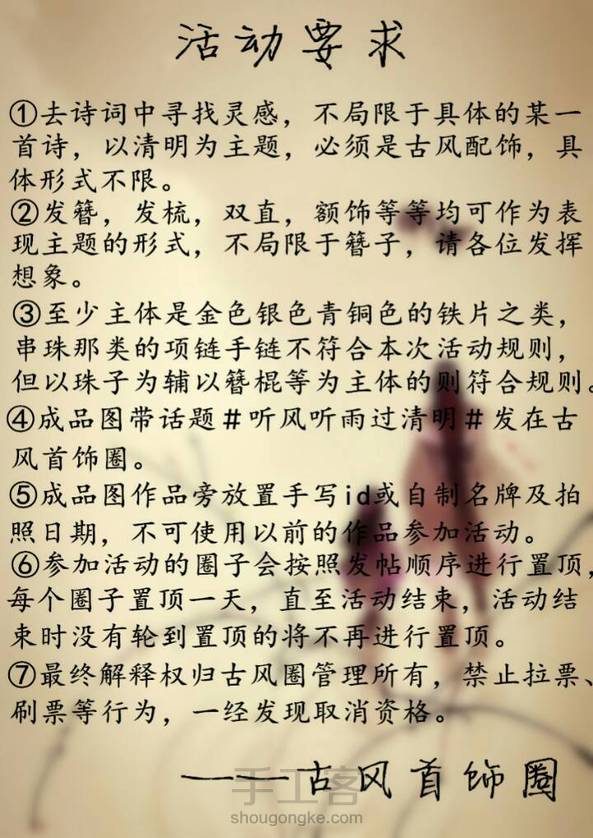 活动要求
①去诗词中寻找灵感，不局限于具体的某一
首诗，以清明为主题，必须是古风配饰，具
体形式不限。
②发簪，发梳，双直，额饰等等均可作为表
现主题的形式，不局限于簪子，请各位发挥
想象。
③至少主体是金色银色青铜色的铁片之类，
串珠那类的项链手链不符合本次活动规则，
但以珠子为辅以簪棍等为主体的则符合规则。
④成品图带话题#听风听雨过清明#发在古
风首饰圈。
⑤成品图作品旁放置手写id或自制名牌及拍
照日期，不可使用以前的作品参加活动。
⑥参加活动的圈子会按照发帖顺序进行置顶，
每个圈子置顶一天，直至活动结束，活动结
束时没有轮到置顶的将不再进行置顶。
⑦最终解释权归古风圈管理所有，禁止拉票、
刷票等行为，一经发现取消资格。
———古风首饰圈
手工客
shougongke.com